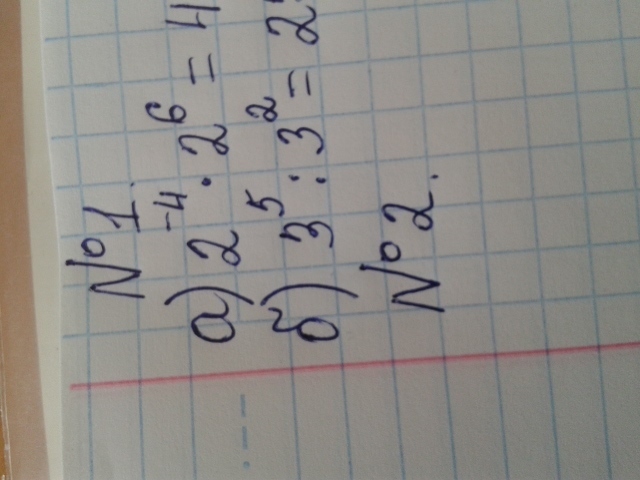 №1.
а) 2⁻⁴ · 2⁶ = 4
б) 3⁵ : 3² = 2
№2.